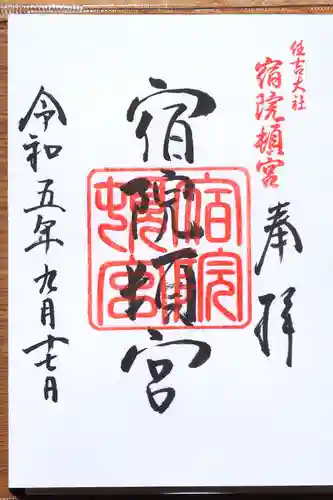 住吉大社
宿院頓宮
奉拝
宿院頓宮
宿院
頓宮
令和五年九月十七日